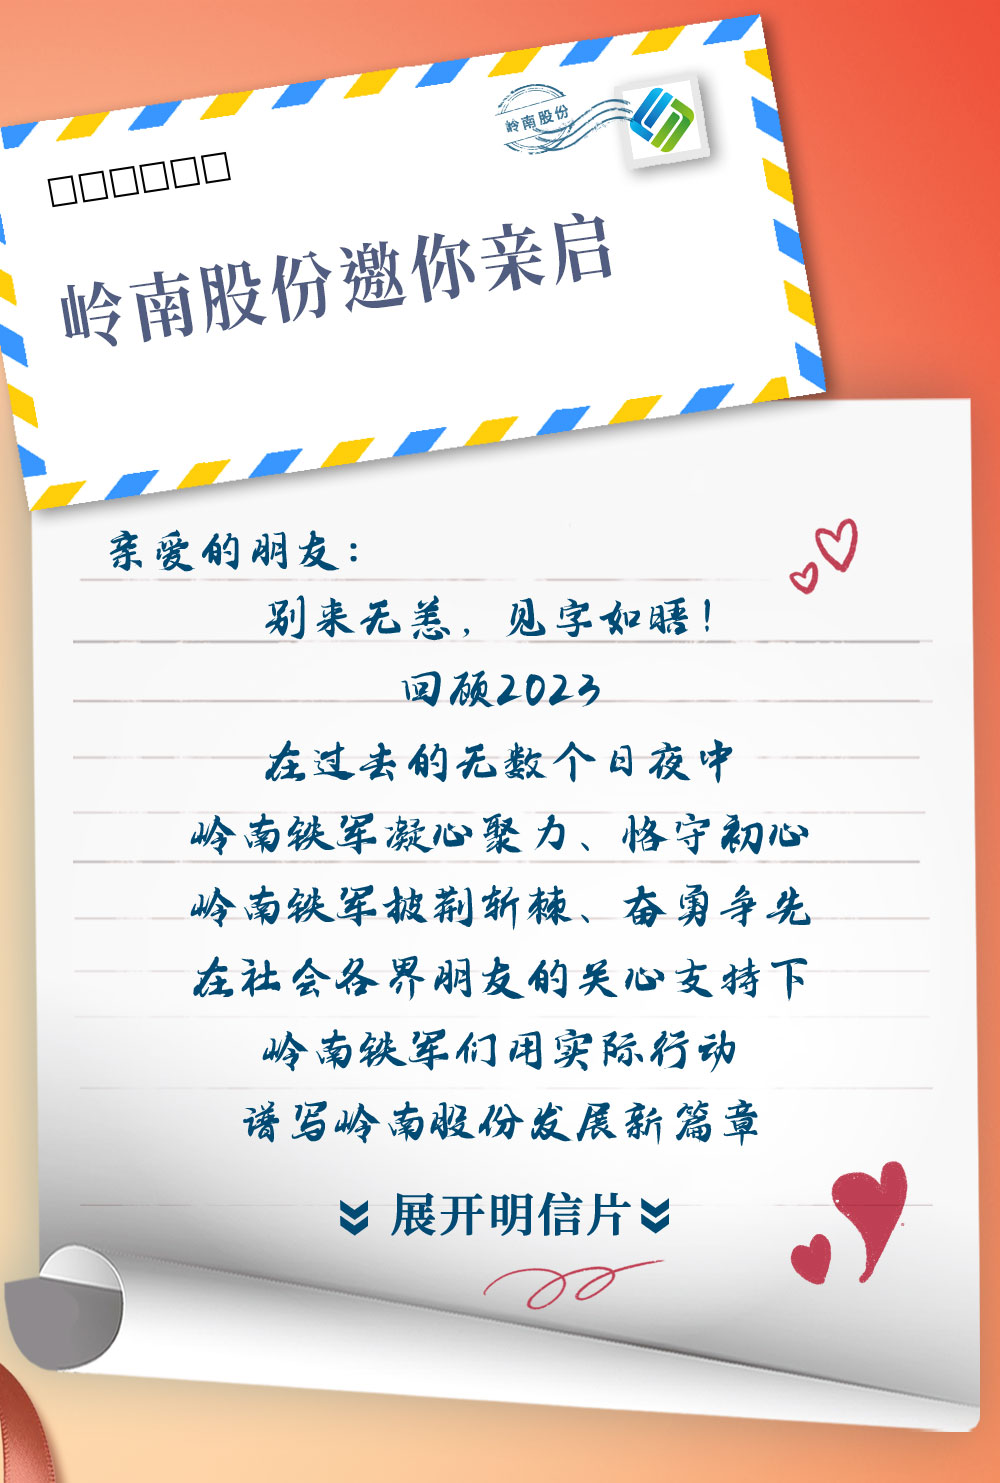 岭南股份
岭南股份邀你亲启
亲爱的朋友：
别来无恙，见字如晤！
回顾2023
在过去的无数个日夜中
岭南铁军凝心聚力、恪守初心
岭南铁军披荆斩棘、奋勇争先
在社会各界朋友的关心支持下
岭南铁军们用实际行动
谱写岭南股份发展新篇章
展开明信片